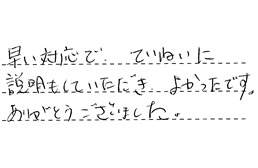 早い対応で、ていねいに
説明もしていただき、よかったです。
ありがとうございました。